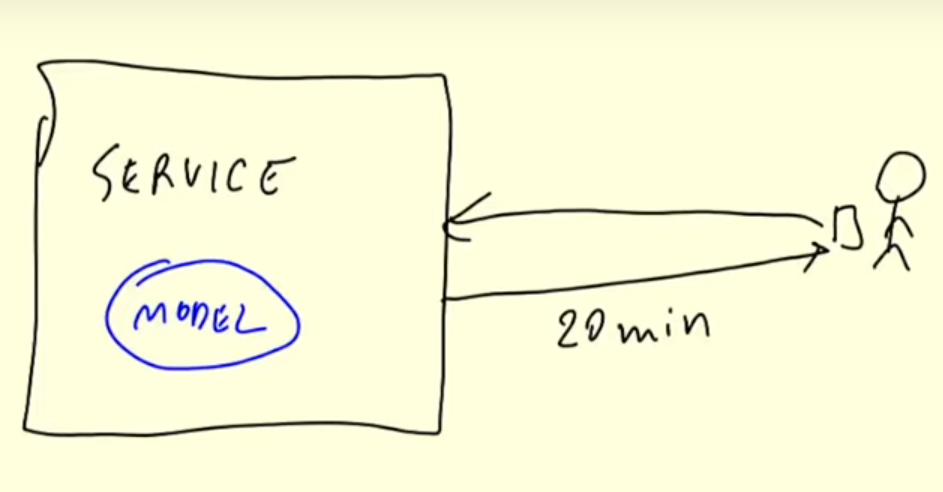 SERVICE
MODEL
20 min